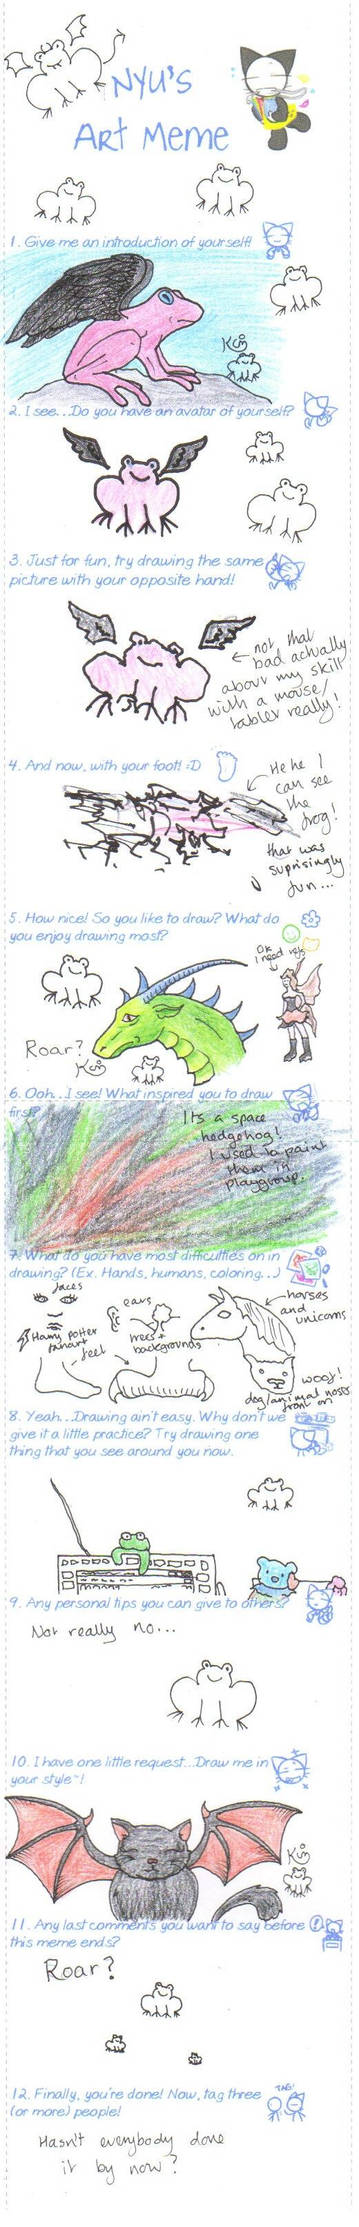 NYU'S
ART MEME
1. Give me an introduction of yourself!
2. I see...Do you have an avatar of yourself?
3. Just for fun, try drawing the same
picture with your opposite hand!
← not that
bad actually
about my skill
with a mouse/
tablet really!
4. And now, with your foot! =D
He he I
can see
the
frog!
that was
suprisingly
fun...
5. How nice! So you like to draw? What do
you enjoy drawing most?
Ok
I need refs
Roar?
6. Ooh...I see! What inspired you to draw
first?
Its a space
hedgehog!
I used to paint
them in
playgroup.
7. What do you have most difficulties on in
drawing? (Ex. Hands, humans, coloring...)
faces
ears
horses
and
unicorns
Harry Potter
fanart
trees +
backgrounds
feet
woof!
dog/animal noses
front on
8. Yeah...Drawing ain't easy. Why don't we
give it a little practice? Try drawing one
thing that you see around you now.
9. Any personal tips you can give to others?
Not really no...
10. I have one little request...Draw me in
your style~!
11. Any last comments you want to say before
this meme ends?
Roar?
12. Finally, you're done! Now, tag three
(or more) people!
TAG!
Hasn't everybody done
it by now?